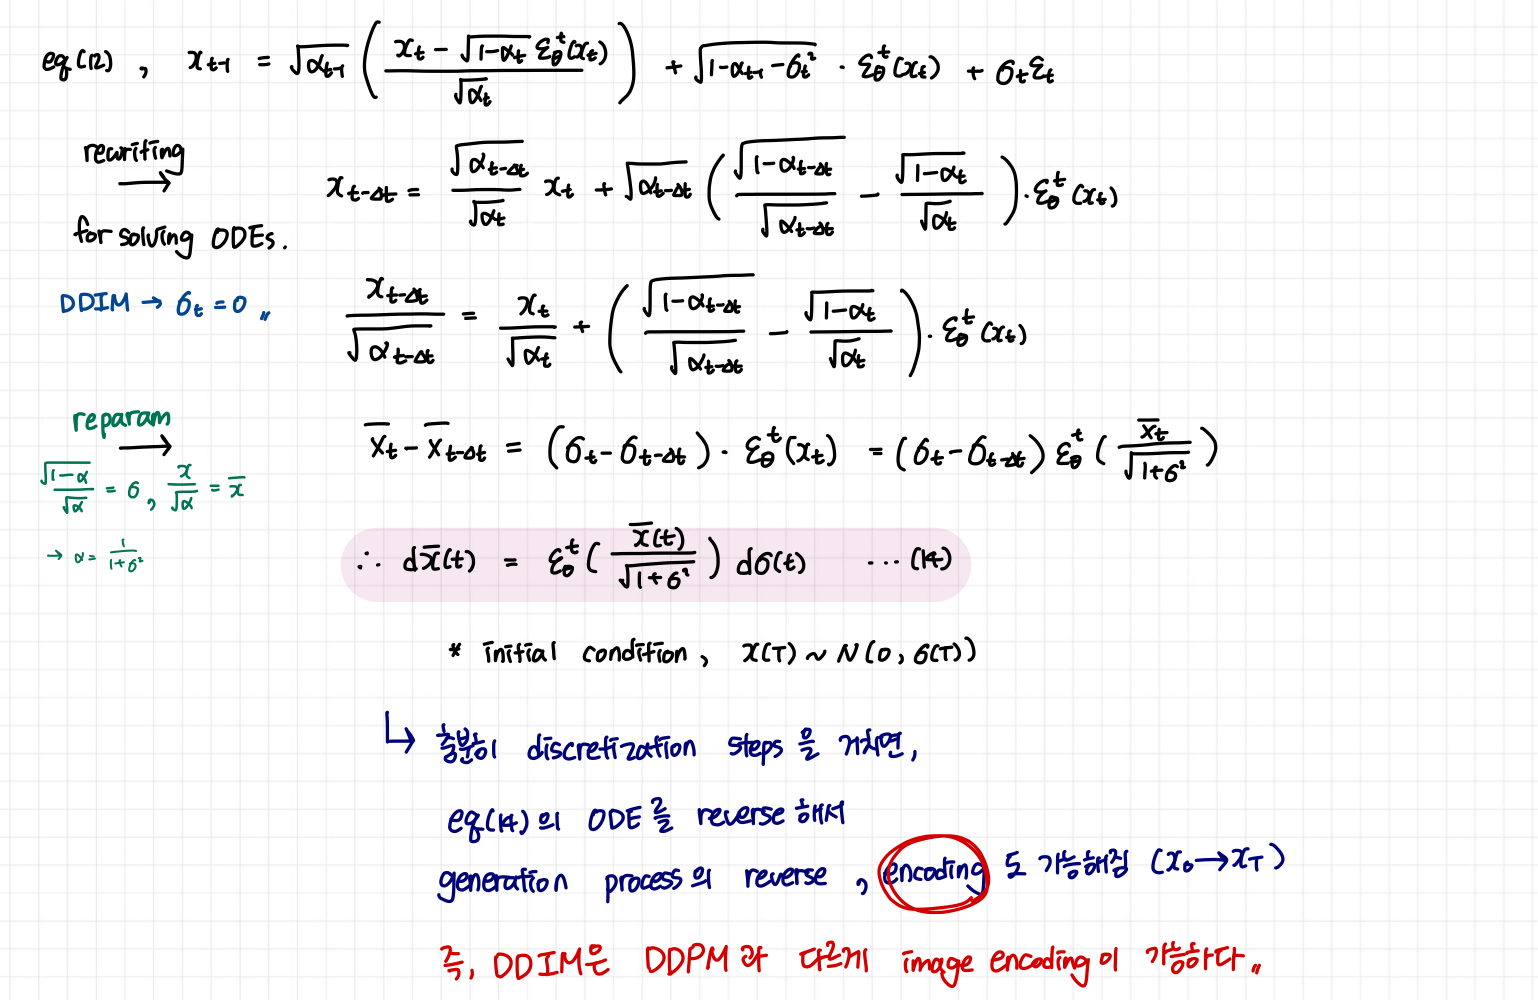 eq(12) , x_{t-1} = √α_{t-1} ( (x_t - √(1-α_t) ε_θ^t(x_t)) / √α_t ) + √(1-α_{t-1} - σ_t²) · ε_θ^t(x_t) + σ_t ε_t
rewriting
→
for solving ODEs.
x_{t-Δt} = (√α_{t-Δt} / √α_t) x_t + √α_{t-Δt} ( √(1-α_{t-Δt}) / √α_{t-Δt} - √(1-α_t) / √α_t ) · ε_θ^t(x_t)
DDIM → σ_t = 0 〃
x_{t-Δt} / √α_{t-Δt} = x_t / √α_t + ( √(1-α_{t-Δt}) / √α_{t-Δt} - √(1-α_t) / √α_t ) · ε_θ^t(x_t)
reparam
→
√(1-α) / √α = σ , x / √α = x̄
→ α = 1 / (1+σ²)
x̄_t - x̄_{t-Δt} = (σ_t - σ_{t-Δt}) · ε_θ^t(x_t) = (σ_t - σ_{t-Δt}) ε_θ^t( x̄_t / √(1+σ²) )
∴ dx̄(t) = ε_θ^t( x̄(t) / √(1+σ²) ) dσ(t) ··· (14)
* initial condition , x(T) ~ N(0, σ(T))
↳ 충분히 discretization steps 을 거치면,
eq(14) 의 ODE 를 reverse 해서
generation process의 reverse , encoding 도 가능해짐 (x_0 → x_T)
즉, DDIM은 DDPM 과 다르게 image encoding 이 가능하다〃